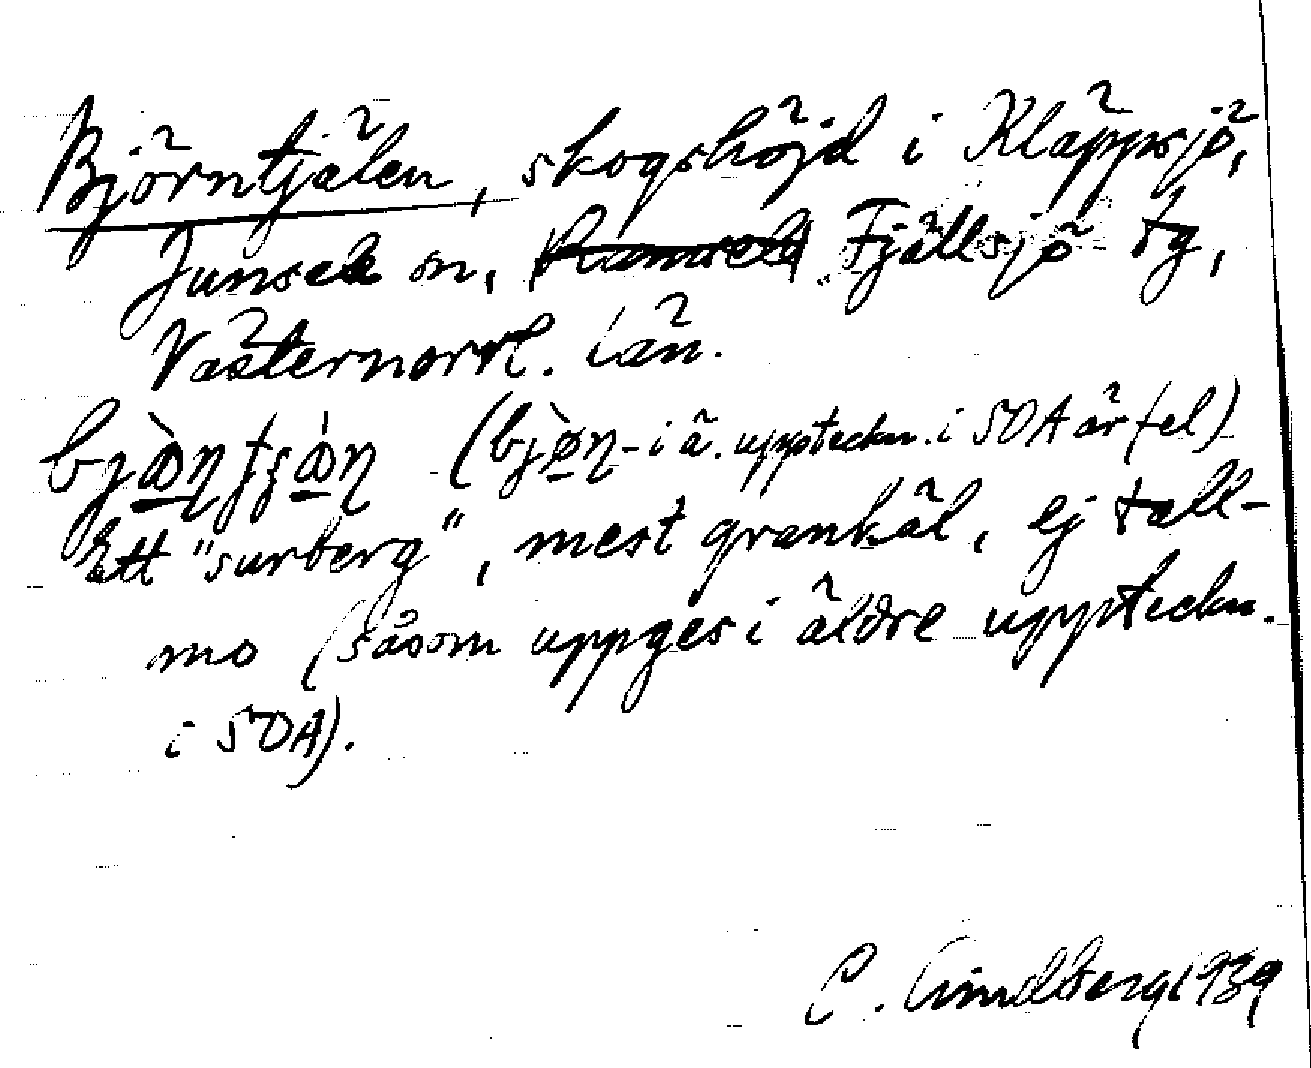 Björntjälen, skogshöjd i Kläppsjö,
Junsele sn, Ramsele Fjällsjö tg,
Västernorrl. län.
(bjøn- i ä. uppteckn. i SOA är fel)
Ett "surberg", mest grankäl, ej tall-
mo (såsom uppges i äldre uppteckn.
i SOA).
C. Lindberg 1939